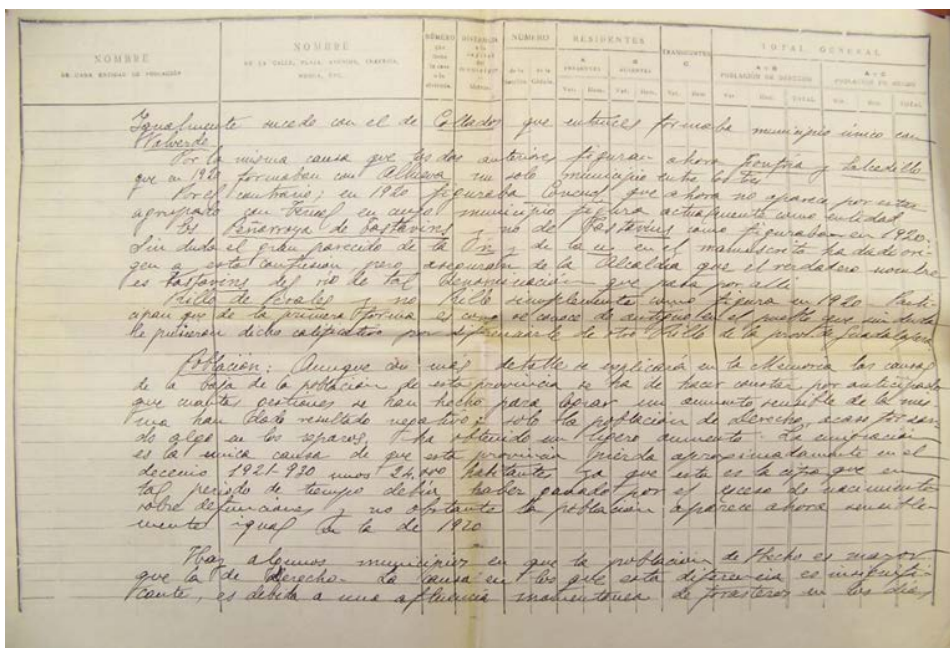 NOMBRE
DE CADA ENTIDAD DE POBLACIÓN
NOMBRE
DE LA CALLE, PLAZA, AVENIDA, TRAVESÍA,
RONDA, ETC.
NÚMERO
que
tiene
la casa
o la
vivienda
DISTANCIA
a la
capital
del
municipio
Metros
NÚMERO
de la
Sección
de la
Cédula
RESIDENTES
A
PRESENTES
B
AUSENTES
Var. Hem. Var. Hem.
TRANSEUNTES
C
Var. Hem.
TOTAL GENERAL
A + B
POBLACIÓN DE DERECHO
Var. Hem. TOTAL
A + C
POBLACIÓN DE HECHO
Var. Hem. TOTAL
Igualmente sucede con el de Collados que entonces formaba municipio único con
Valverde
Por la misma causa que los dos anteriores figuran ahora Fonfría y Salcedillo
que en 1920 formaban con Allueva un solo municipio entre los tres
Por el contrario; en 1920 figuraba Concud que ahora no aparece por estar
agrupado con Teruel en cuyo municipio figura actualmente como entidad
Es Peñarroya de Tastavins y no de Tastavíus como figuraba en 1920.
Sin duda el gran parecido de la n y de la u en el manuscrito ha dado ori-
gen a esta confusión pero aseguran de la Alcaldía que el verdadero nombre
es Tastavins del río de tal denominación que pasa por allí.
Rillo de Perales y no Rillo simplemente como figura en 1920. Parti-
cipan que de la primera forma es como se conoce de antiguo en el pueblo que sin duda
le pusieron dicho calificativo por diferenciarle de otro Rillo de la prov. de Guadalajara
Población: Aunque con más detalle se explicarán en la Memoria las causas
de la baja de la población de esta provincia se ha de hacer constar por anticipado
que cuantas gestiones se han hecho para lograr un aumento sensible de la mis-
ma han dado resultado negativo; solo la población de Derecho, acaso forzan-
do algo en los reparos, ha obtenido un ligero aumento. La emigración
es la única causa de que esta provincia pierda aproximadamente en el
decenio 1921-930 unos 24.000 habitantes ya que esta es la cifra que en
tal periodo de tiempo debía haber ganado por el exceso de nacimientos
sobre defunciones y no obstante la población aparece ahora sensible-
mente igual a la de 1920
Hay algunos municipios en que la población de Hecho es mayor
que la de Derecho. La causa en los que esta diferencia es insignifi-
cante, es debida a una afluencia momentánea de forasteros en los días